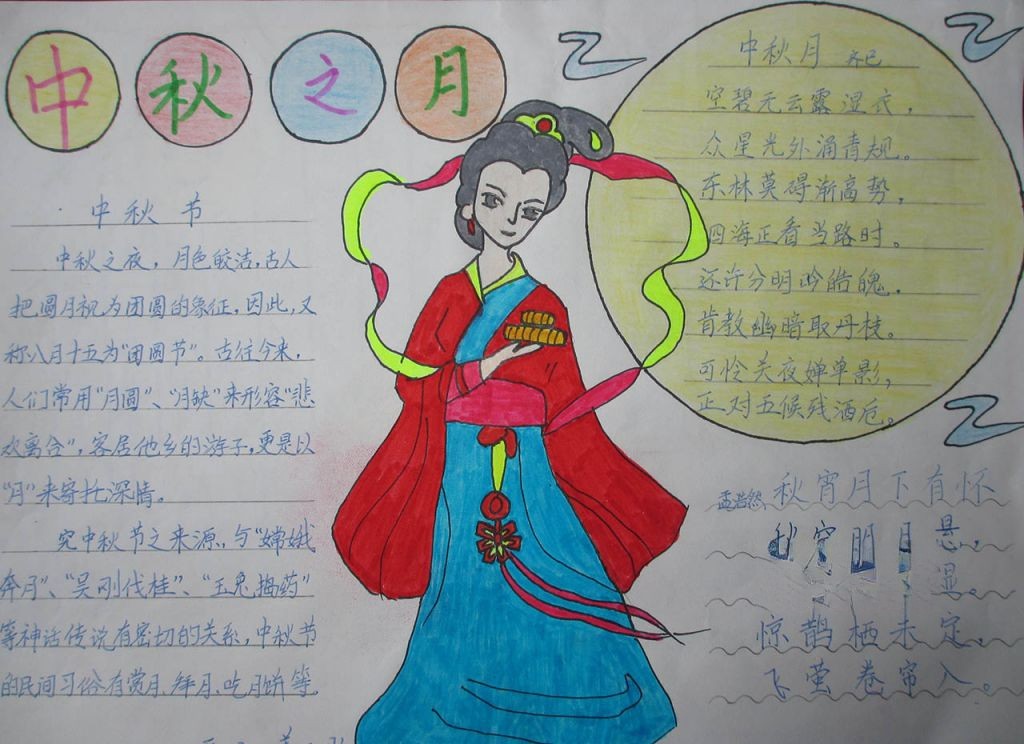 中秋之月
中秋节
中秋之夜，月色皎洁，古人
把圆月视为团圆的象征，因此，又
称八月十五为“团圆节”。古往今来，
人们常用“月圆”、“月缺”来形容“悲
欢离合”，客居他乡的游子，更是以
“月”来寄托深情。
究中秋节之来源，与“嫦娥
奔月”、“吴刚伐桂”、“玉兔捣药”
等神话传说有密切的关系，中秋节
的民间习俗有赏月、拜月、吃月饼等
中秋月 齐已
空碧无云露湿衣，
众星光外涌青规。
东林莫碍渐高势，
四海正看当路时。
还许分明吟皓魄，
肯教幽暗取丹枝。
可怜关夜婵单影，
正对五候残酒卮。
孟浩然 秋宵月下有怀
秋空明月悬，
湿。
惊鹊栖未定，
飞萤卷帘入。